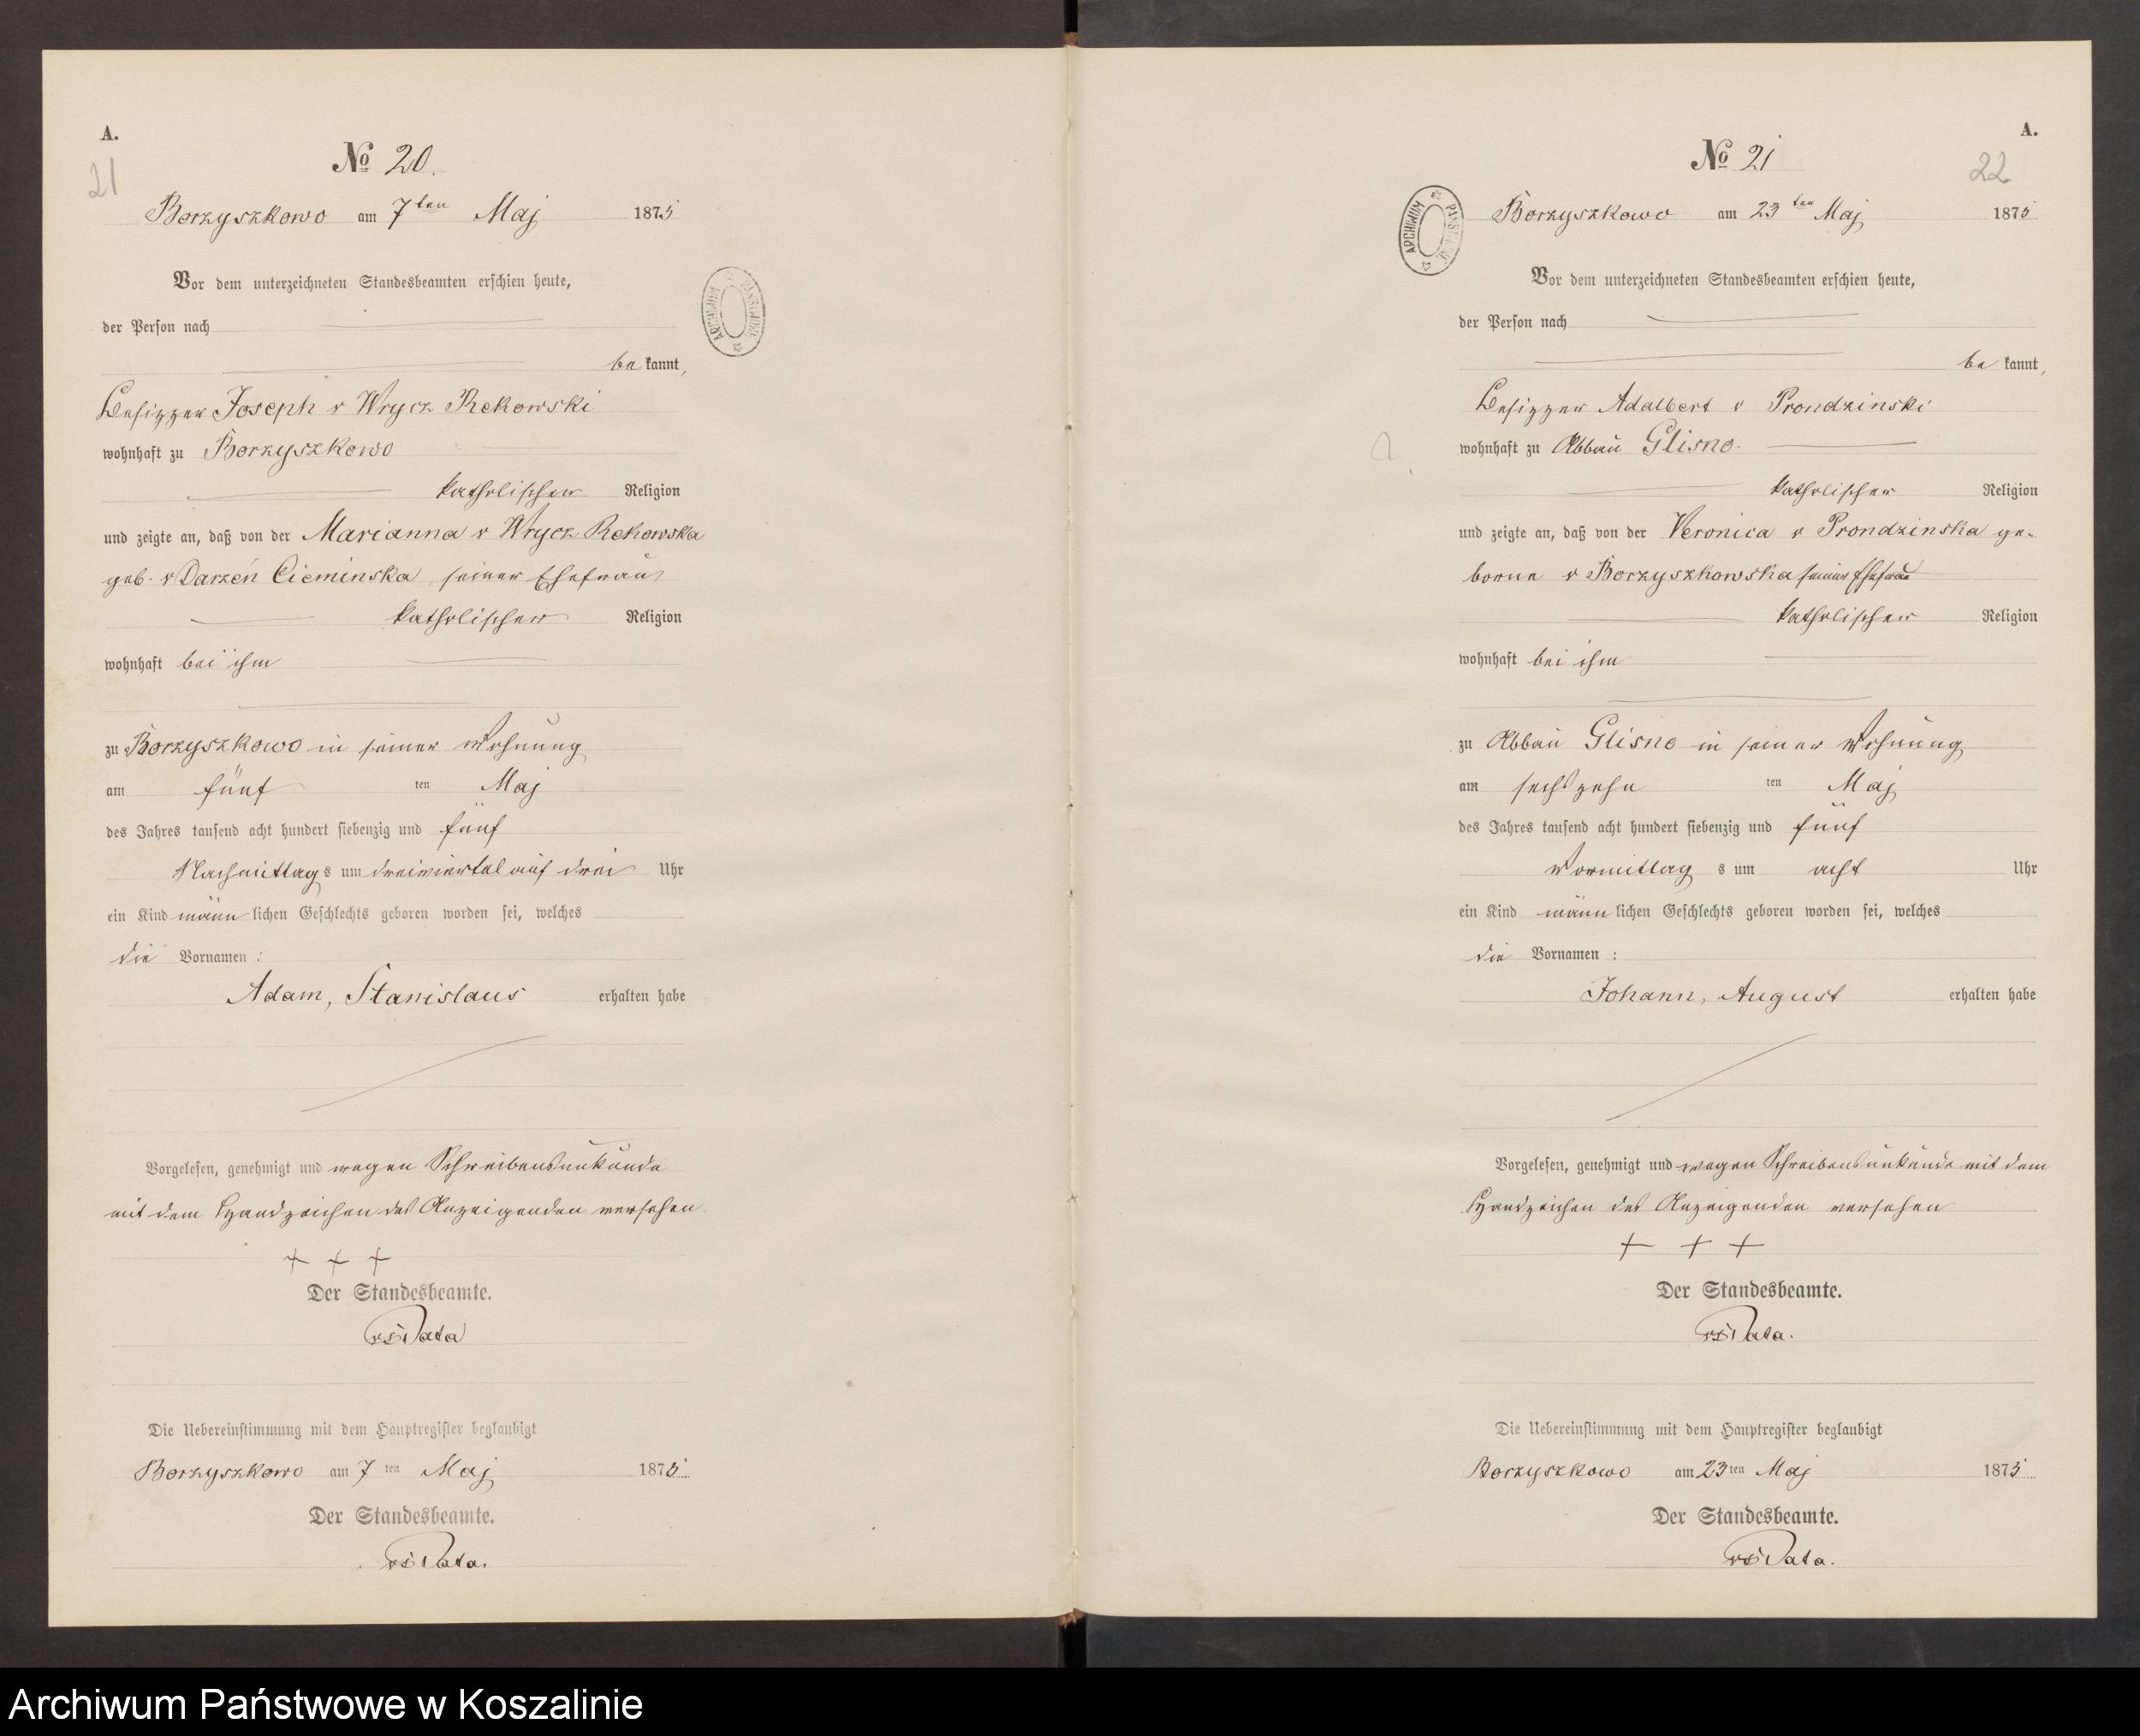 A.
21
No 20.
Borzyszkowo am 7ten Maj 1875
ARCHIWUM PAŃSTWOWE
Vor dem unterzeichneten Standesbeamten erschien heute,
der Person nach
be kannt,
Besitzer Joseph v Wrycz Rekowski
wohnhaft zu Borzyszkowo
katholischer Religion
und zeigte an, daß von der Marianna v Wrycz Rekowska
geb. v Darzeń Cieminska, seiner Ehefrau
katholischer Religion
wohnhaft bei ihm
zu Borzyszkowo in seiner Wohnung
am fünf ten Maj
des Jahres tausend acht hundert siebenzig und fünf
Nachmittag s um dreiviertel auf drei Uhr
ein Kind männ lichen Geschlechts geboren worden sei, welches
die Vornamen :
Adam, Stanislaus erhalten habe
Vorgelesen, genehmigt und wegen Schreibensunkunde
mit dem Handzeichen des Anzeigenden versehen.
+ + +
Der Standesbeamte.
Die Uebereinstimmung mit dem Hauptregister beglaubigt
Borzyszkowo am 7 ten Maj 1875.
Der Standesbeamte.
A.
22
No 21
ARCHIWUM PAŃSTWOWE
Borzyszkowo am 23ten Maj 1875
Vor dem unterzeichneten Standesbeamten erschien heute,
der Person nach
be kannt,
Besitzer Adalbert v Prondzinski
wohnhaft zu Abbau Glisno.
katholischer Religion
und zeigte an, daß von der Veronica v Prondzinska ge-
borne v Borzyszkowska seiner Ehefrau
katholischer Religion
wohnhaft bei ihm
zu Abbau Glisno in seiner Wohnung
am sechszehn ten Maj
des Jahres tausend acht hundert siebenzig und fünf
Vormittag s um acht Uhr
ein Kind männ lichen Geschlechts geboren worden sei, welches
die Vornamen :
Johann, August erhalten habe
Vorgelesen, genehmigt und wegen Schreibensunkunde mit dem
Handzeichen des Anzeigenden versehen
+ + +
Der Standesbeamte.
Die Uebereinstimmung mit dem Hauptregister beglaubigt
Borzyszkowo am 23 ten Maj 1875.
Der Standesbeamte.
Archiwum Państwowe w Koszalinie